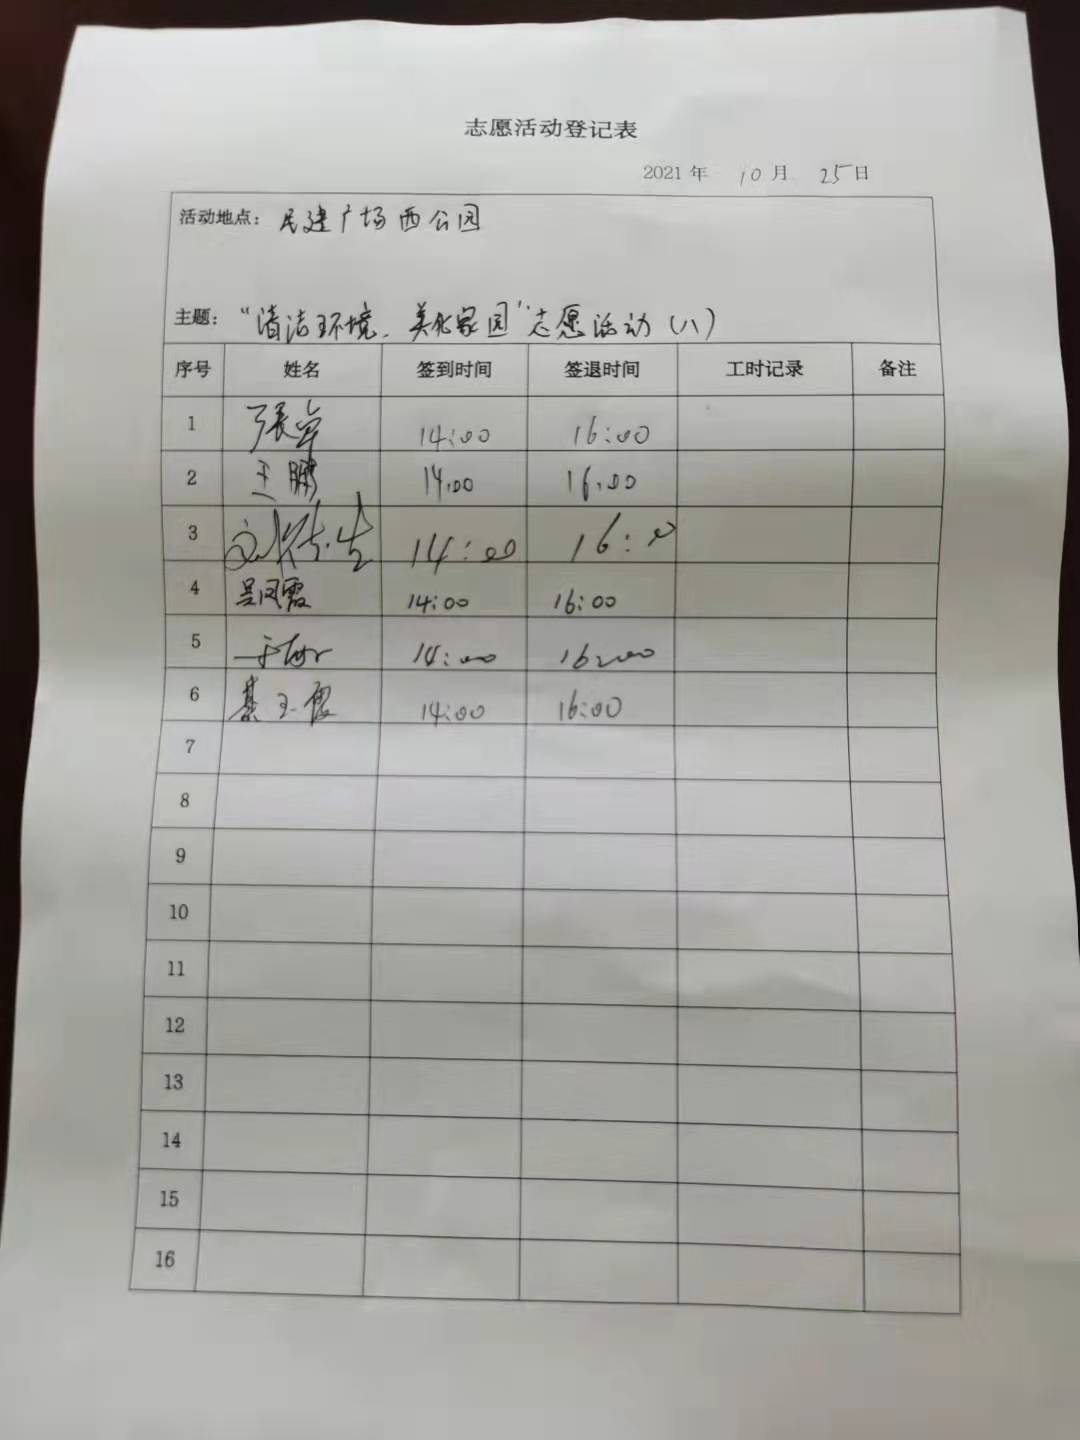 志愿活动登记表
2021 年 10 月 25 日
活动地点: 民建广场西公园
主题: “清洁环境、美化家园”志愿活动(八)
序号 姓名 签到时间 签退时间 工时记录 备注
1 張卓 14:00 16:00
2 王鹏 14:00 16:00
3 14:00 16:00
4 吴凤霞 14:00 16:00
5 14:00 16:00
6 綦玉霞 14:00 16:00
7
8
9
10
11
12
13
14
15
16